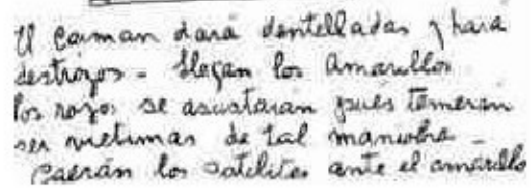 El caiman dará dentelladas y hará
destrozos - Llegan los amarillos
los rojos se asustaran pués temeran
ser victimas de tal maniobra -
Caerán los satelites ante el amarillo